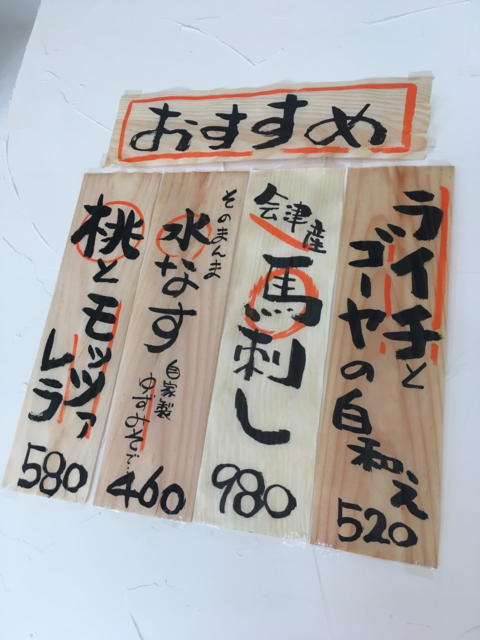 おすすめ
ライチと
ゴーヤの白和え
520
会津産
馬刺し
980
そのまんま
水なす
自家製
ゆずみそで…
460
桃とモッツァ
レラ
580